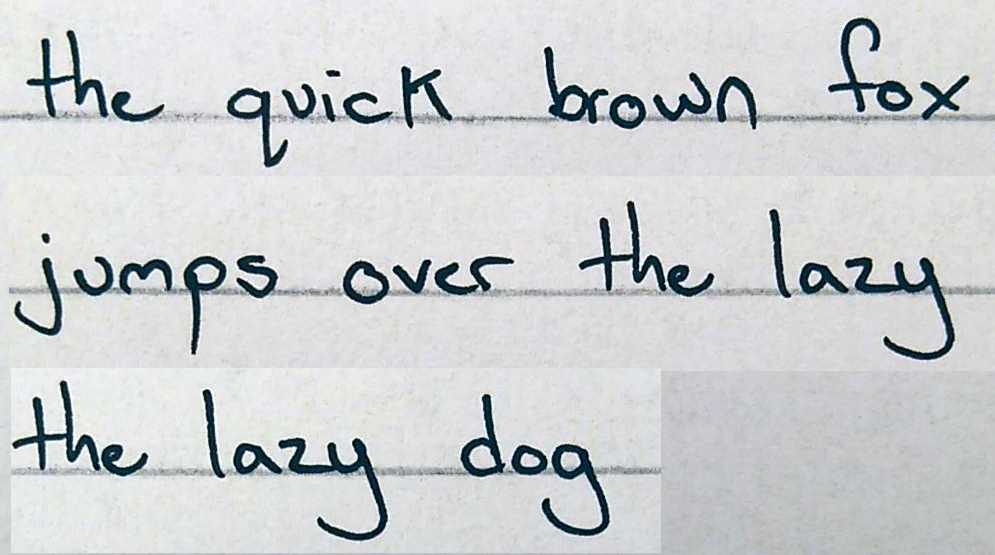 the quick brown fox
jumps over the lazy
the lazy dog